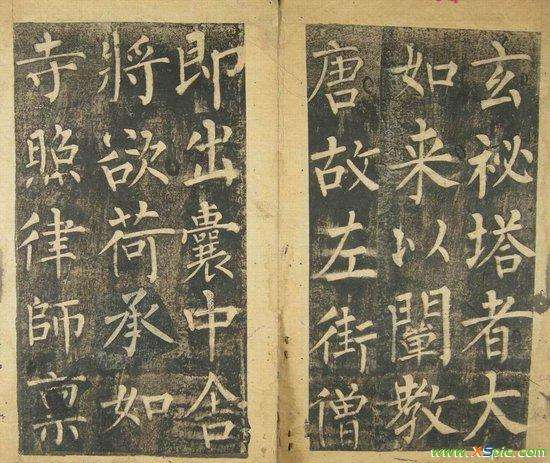 玄祕塔者大
如来以闡教
唐故左街僧
即出囊中舍
將欲荷承如
寺照律師禀
www.XSpic.com